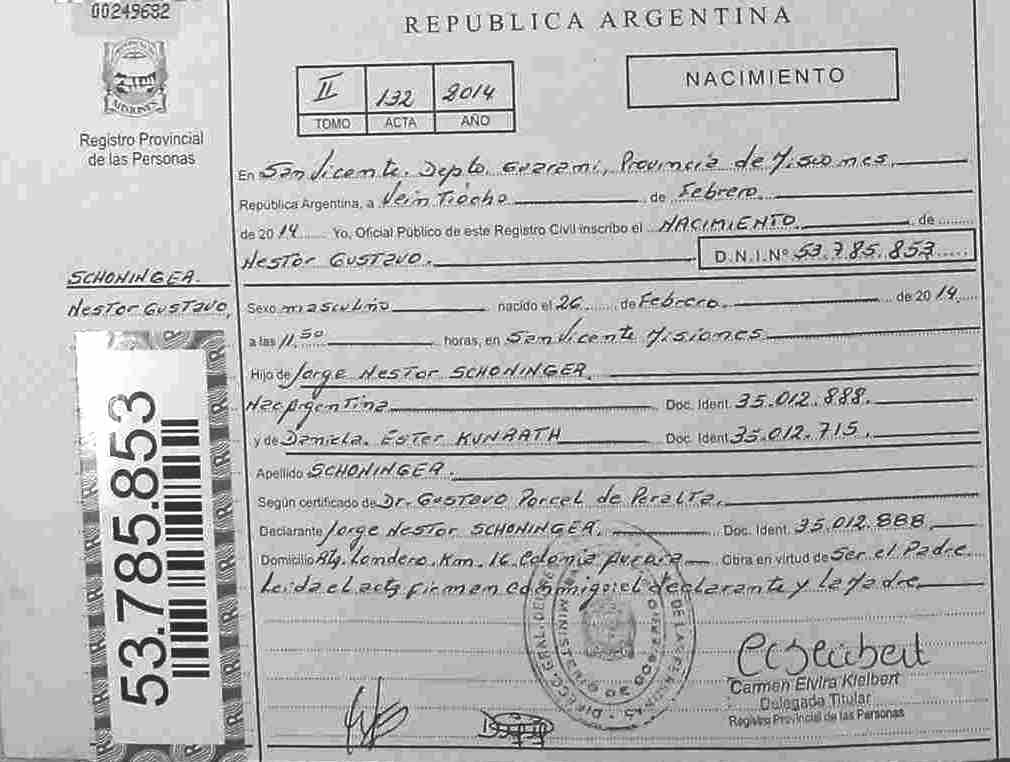 00249632
REPUBLICA ARGENTINA
MISIONES
Registro Provincial
de las Personas
II 132 2014
TOMO ACTA AÑO
NACIMIENTO
En San Vicente. Depto. Guarani, Provincia de Misiones.
República Argentina, a VeinTiocho de Febrero.
de 2014 Yo, Oficial Público de este Registro Civil inscribo el NACIMIENTO de
NESTOR GUSTAVO. D.N.I.Nº 53.785.853
SCHONINGER.
NESTOR GUSTAVO,
Sexo masculino nacido el 26 de Febrero de 2014
a las 11.50 horas, en San Vicente Misiones
Hijo de Jorge NESTOR SCHONINGER.
NacArgentina Doc. Ident. 35.012.888.
y de Daniela. ESTER KUNRATH Doc. Ident 35.012.715.
Apellido SCHONINGER.
Según certificado de Dr. GUSTAVO Porcel de Peralta.
Declarante Jorge NESTOR SCHONINGER. Doc. Ident. 35.012.888
Domicilio Km. 16 Colonia Obra en virtud de Ser el Padre
Leida el acta firman conmigo el declarante y la Madre
53.785.853
Carmen Elvira Kleibert
Delegada Titular
Registro Provincial de las Personas